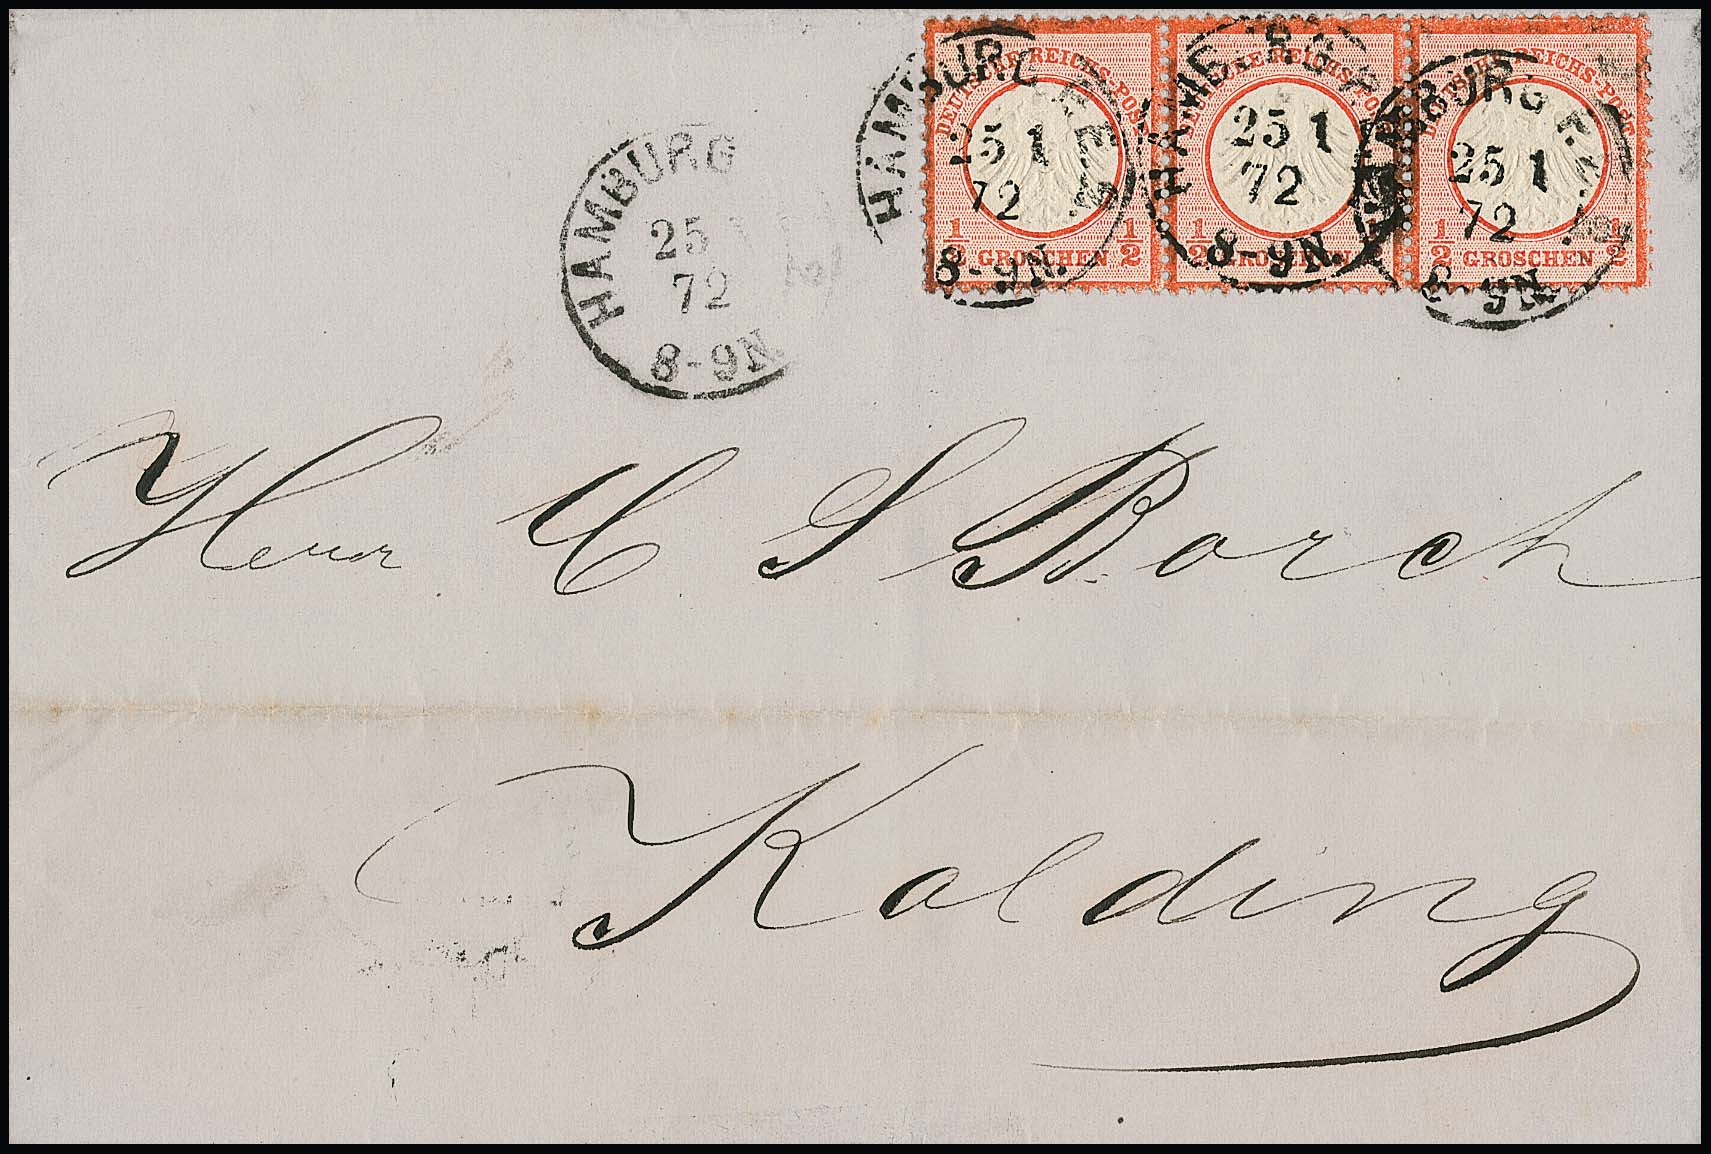 DEUTSCHE REICHS-POST DEUTSCHE REICHS-POST DEUTSCHE REICHS-POST
1/2 GROSCHEN 1/2 1/2 GROSCHEN 1/2 1/2 GROSCHEN 1/2
HAMBURG
25 1
72
8-9N.
HAMBURG
25 1
72
8-9N.
HAMBURG
25 1
72
8-9N.
HAMBURG
25 1
72
8-9N
Herr C S Borch
Kolding